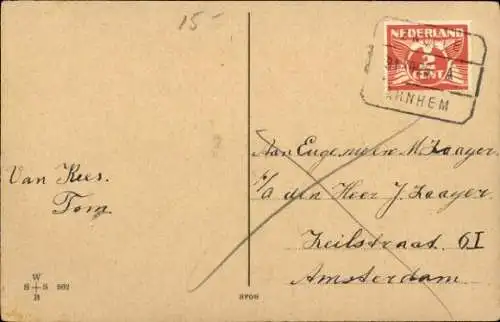 15-
NEDERLAND
2
CENT
ARNHEM
Van Kees.
Tom
Aan Eugenieen M Zaayer
c/a den Heer J. Zaayer
Zeilstraat 6I
Amsterdam
W
S + S 902
B